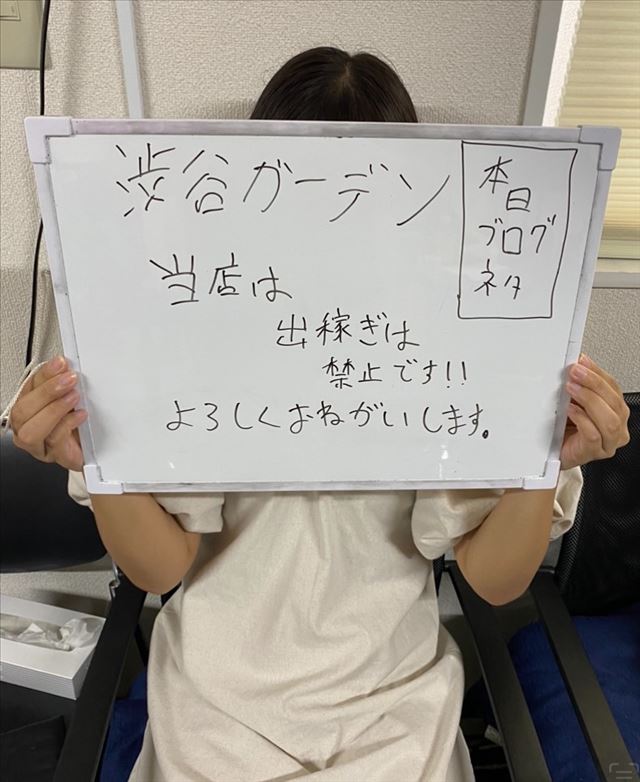 渋谷ガーデン
本日
ブログ
ネタ
当店は
出稼ぎは
禁止です!!
よろしくおねがいします。